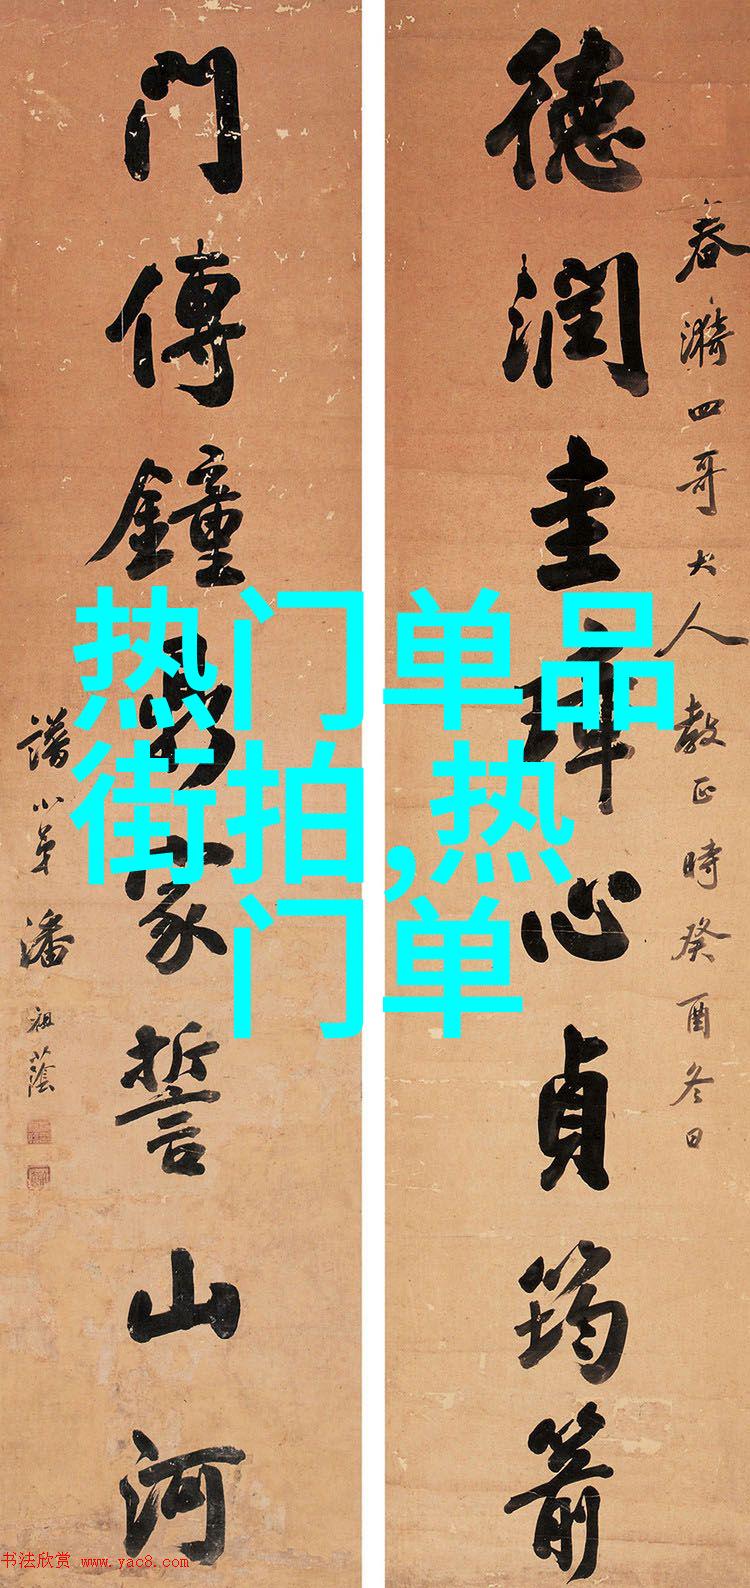 德润圭璋心貞筠箭
春漪四哥大人教正時癸酉冬日
门傳鐘鼎家誓山河
譜小弟潘祖蔭
热门单品
街拍,热
门单
书法欣赏 www.yac8.com